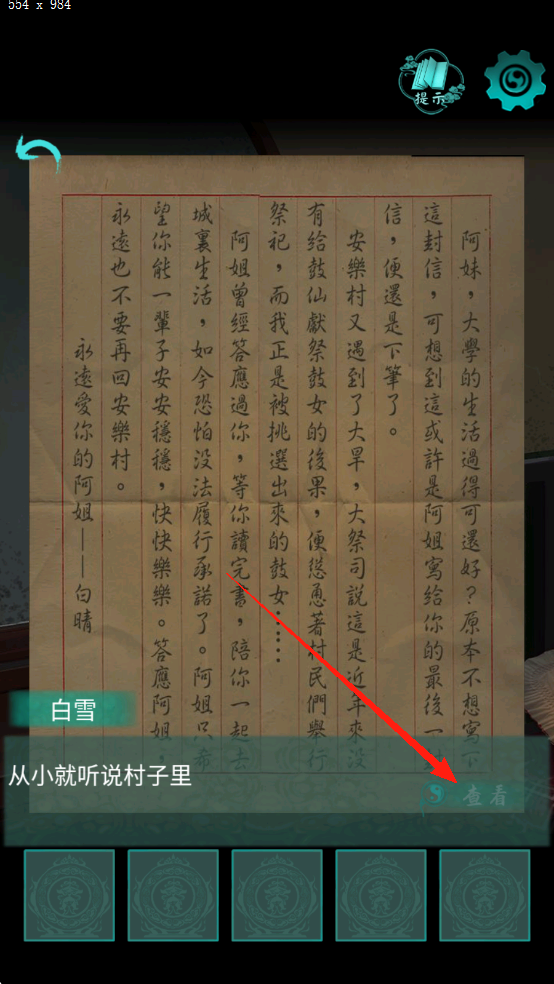 554 x 984
提示
阿妹，大學的生活過得可還好？原本不想寫下
這封信，可想到這或許是阿姐寫給你的最後一封
信，便還是下筆了。
安樂村又遇到了大旱，大祭司說這是近年來沒
有給鼓仙獻祭鼓女的後果，便慫恿著村民們舉行
祭祀，而我正是被挑選出來的鼓女……
阿姐曾經答應過你，等你讀完書，陪你一起去
城裏生活，如今恐怕沒法履行承諾了。阿姐只希
望你能一輩子安安穩穩，快快樂樂。答應阿姐，
永遠也不要再回安樂村。
永遠愛你的阿姐——白晴
白雪
从小就听说村子里
查看